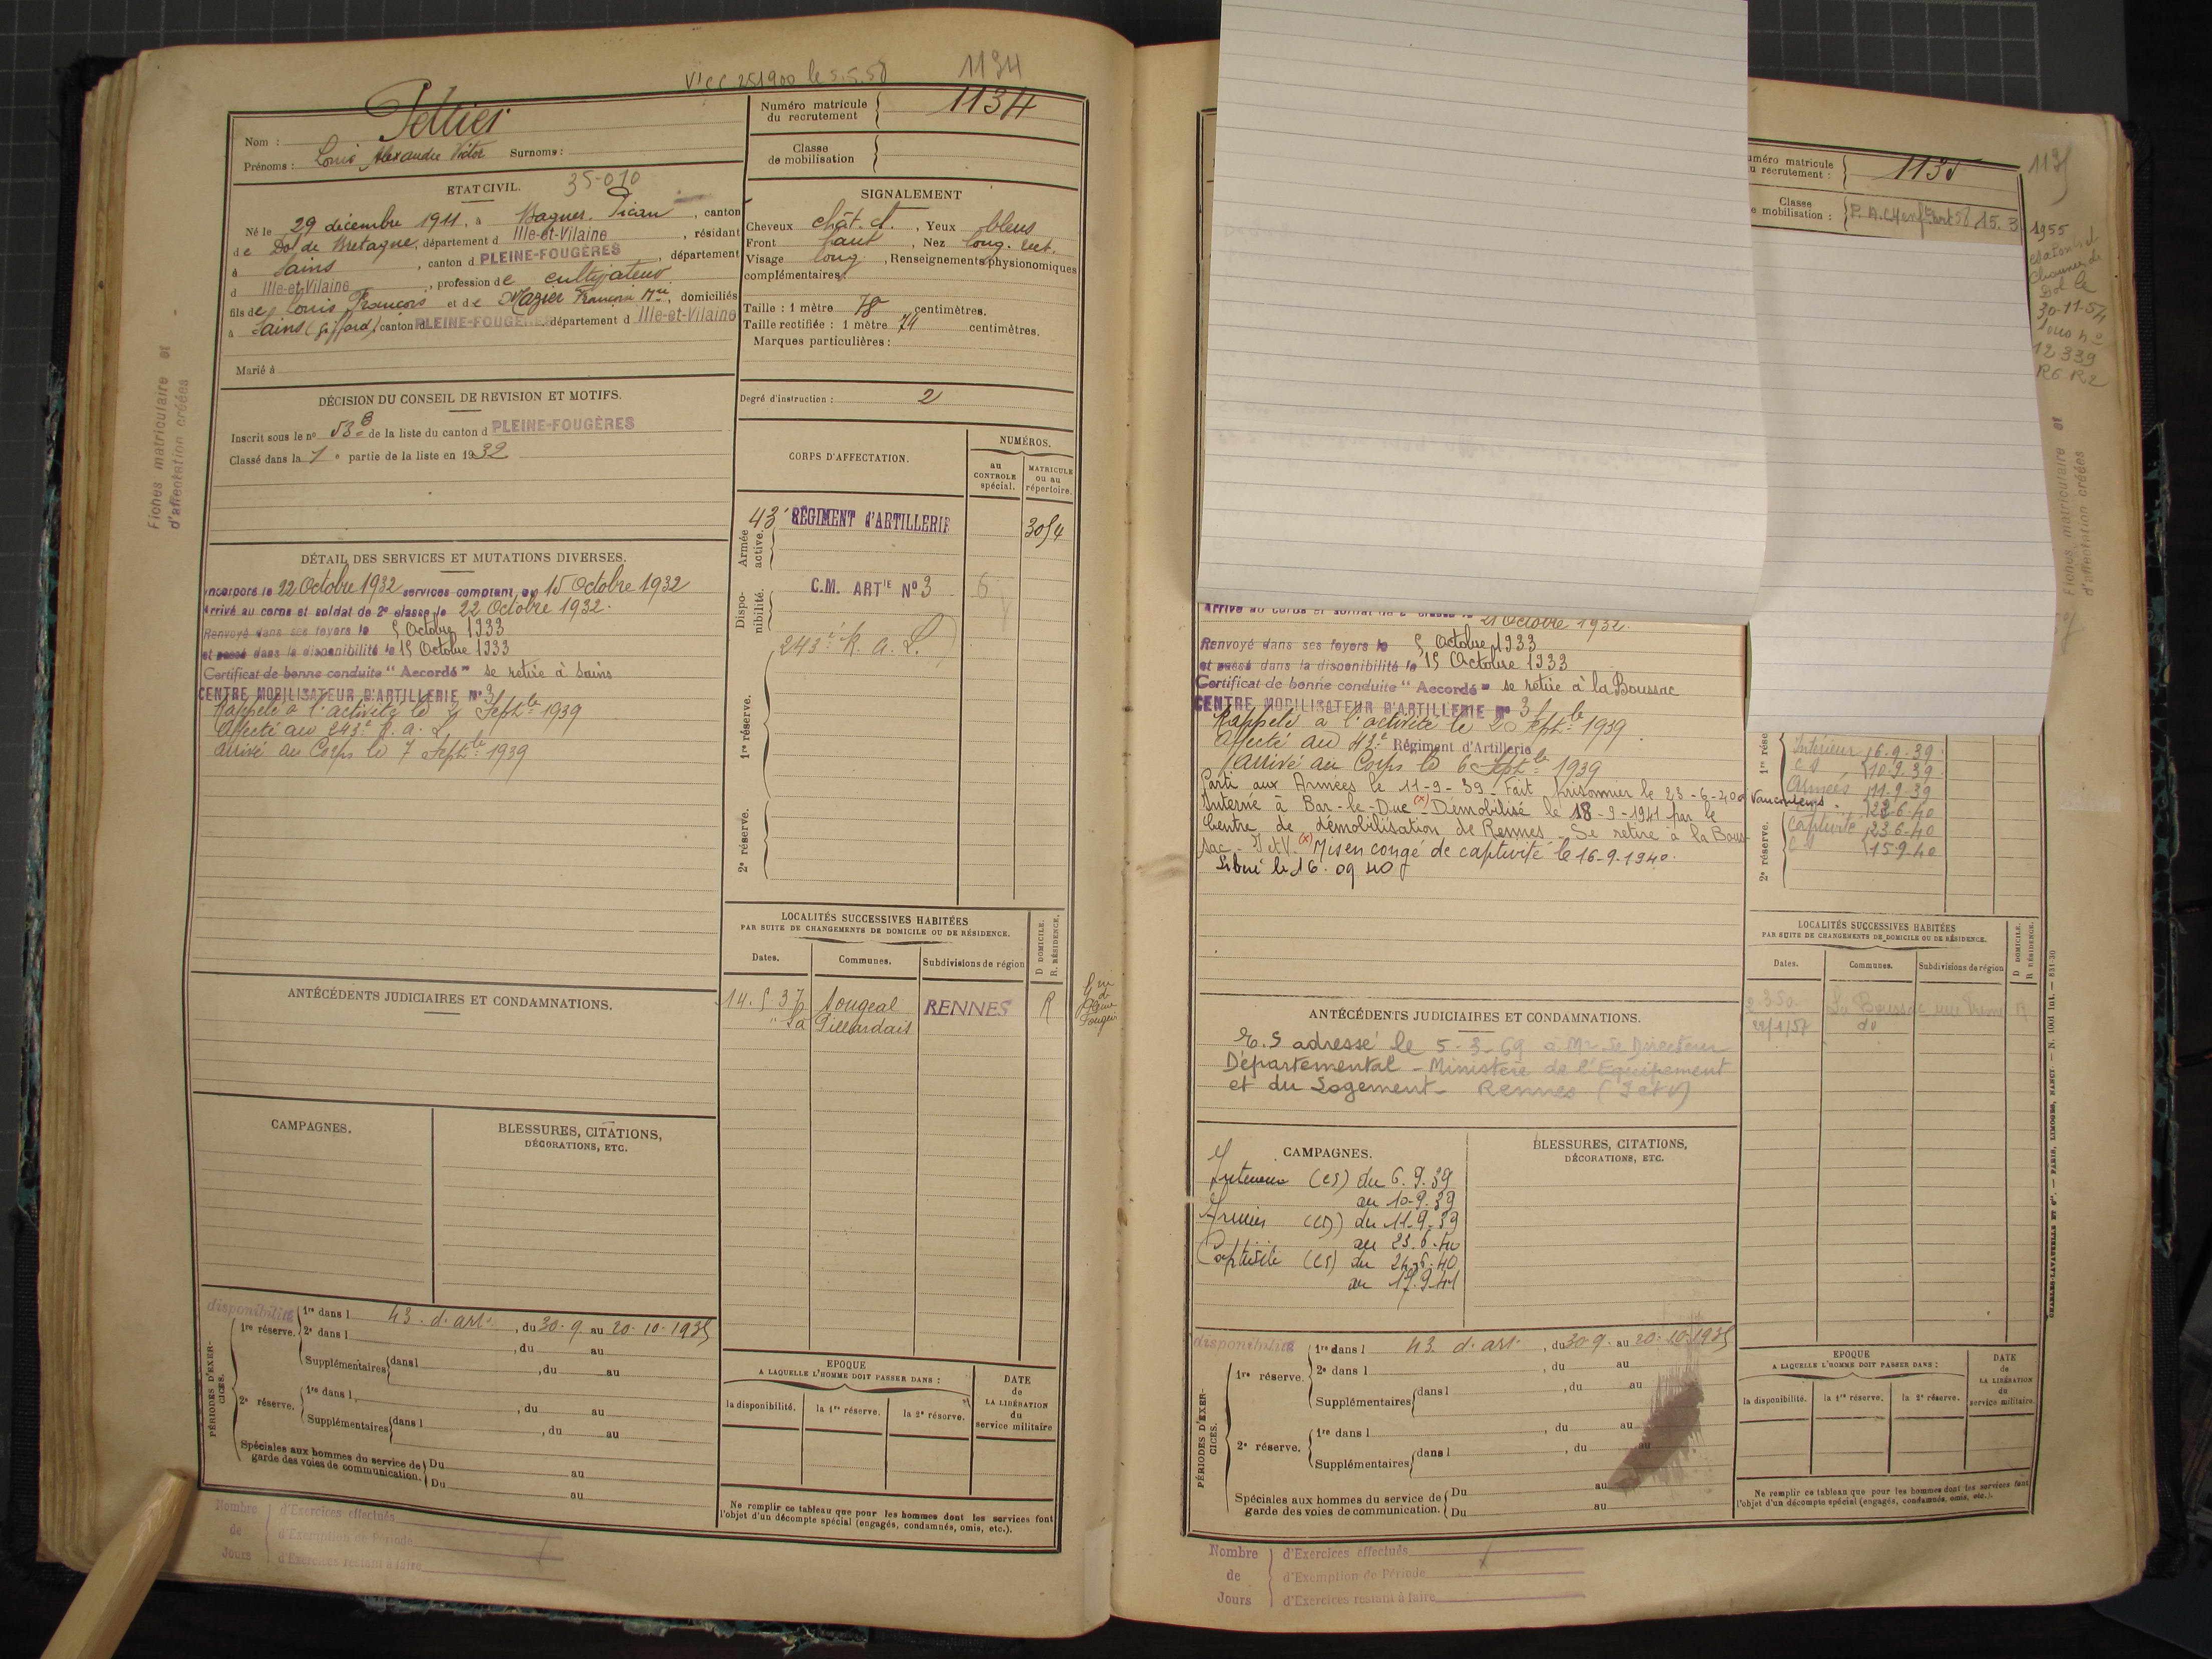 V'CC 251900 le 5.5.58
1134
Nom : Peltier
Prénoms : Louis Alexandre Victor Surnoms :
Numéro matricule du recrutement 1134
Classe de mobilisation
ETAT CIVIL. 35-010
Né le 29 décembre 1911, à Baguer. Pican, canton
de Dol de Bretagne, département d Ille-et-Vilaine, résidant
à Sains, canton d PLEINE-FOUGÈRES, département
d Ille-et-Vilaine, profession de cultivateur
fils de Louis François et de Mazier Françoise Mie, domiciliés
à Sains (Giffard) canton PLEINE-FOUGÈRES département d Ille-et-Vilaine
Marié à
SIGNALEMENT
Cheveux chât. , Yeux bleus
Front haut, Nez long. rect.
Visage long, Renseignements physionomiques
complémentaires:
Taille : 1 mètre 78 centimètres.
Taille rectifiée : 1 mètre 74 centimètres.
Marques particulières :
Degré d'instruction : 2
DÉCISION DU CONSEIL DE REVISION ET MOTIFS.
Inscrit sous le n° 53 B de la liste du canton d PLEINE-FOUGÈRES
Classé dans la 1e partie de la liste en 1932
CORPS D'AFFECTATION.
NUMÉROS.
au CONTROLE spécial.
MATRICULE ou au répertoire.
Armée active.
43e RÉGIMENT d'ARTILLERIE 3054
Disponibilité.
C.M. ARTIE N°3 6
243e R. a. L.
1re réserve.
2e réserve.
DÉTAIL DES SERVICES ET MUTATIONS DIVERSES.
Incorporé le 22 Octobre 1932 services comptant du 15 Octobre 1932
Arrivé au corps et soldat de 2e classe le 22 Octobre 1932.
Renvoyé dans ses foyers le 5 Octobre 1933
et passé dans la disponibilité le 15 Octobre 1933
Certificat de bonne conduite "Accordé" se retire à Sains
CENTRE MOBILISATEUR D'ARTILLERIE N° 3
Rappelé à l'activité le 2 Septbre 1939
Affecté au 243e R. a. L.
arrivé au Corps le 7 Septbre 1939
LOCALITÉS SUCCESSIVES HABITÉES
PAR SUITE DE CHANGEMENTS DE DOMICILE OU DE RÉSIDENCE.
D DOMICILE.
R. RÉSIDENCE.
Dates. Communes. Subdivisions de région
14. 5. 37 Sougeal RENNES R
" La Pillardais
ANTÉCÉDENTS JUDICIAIRES ET CONDAMNATIONS.
CAMPAGNES.
BLESSURES, CITATIONS,
DÉCORATIONS, ETC.
PÉRIODES D'EXERCICES.
disponibilité
1re réserve. 1re dans l 43. d. art., du 30. 9. au 20. 10. 1935
2e dans l , du au
Supplémentaires dans l , du au
2e réserve. 1re dans l , du au
Supplémentaires dans l , du au
Spéciales aux hommes du service de garde des voies de communication. Du au
Du au
EPOQUE
A LAQUELLE L'HOMME DOIT PASSER DANS :
la disponibilité. la 1re réserve. la 2e réserve.
DATE de LA LIBÉRATION du service militaire
Ne remplir ce tableau que pour les hommes dont les services font
l'objet d'un décompte spécial (engagés, condamnés, omis, etc.).
Nombre de Jours
d'Exercices effectués
d'Exemption de Période
d'Exercices restant à faire
Fiches matriculaire et
d'affectation créées
uméro matricule
u recrutement : 1135
Classe
e mobilisation :
1135
1955
Dol le
30-11-54
sous n°
12.339
R6 R2
Fiches matriculaire et
d'affectation créées
Arrivé au corps et soldat de 2e classe le 21 Octobre 1932.
Renvoyé dans ses foyers le 5 Octobre 1933
et passé dans la disponibilité le 15 Octobre 1933
Certificat de bonne conduite "Accordé" se retire à la Boussac
CENTRE MOBILISATEUR D'ARTILLERIE N° 3
Rappelé à l'activité le 2 Septbre 1939
Affecté au 42e Régiment d'Artillerie
arrivé au Corps le 6 Septbre 1939
Parti aux Armées le 11-9-39 - Fait prisonnier le 23-6-40 à Vaucouleurs.
Interné à Bar-le-Duc (x) - Démobilisé le 18-9-1941 par le
Centre de démobilisation de Rennes - Se retire à la Bous-
sac - I et V. (x) Mis en congé de captivité le 16-9-1940.
Libéré le 16.09 40
1re rése
2e réserve.
Intérieur 6.9.39
CS 10.9.39
Armées 11.9.39
22.6.40
Captivité 23.6.40
CS 15.9.40
LOCALITÉS SUCCESSIVES HABITÉES
PAR SUITE DE CHANGEMENTS DE DOMICILE OU DE RÉSIDENCE.
D DOMICILE.
R RÉSIDENCE.
Dates. Communes. Subdivisions de région
La Boussac R
22/1/57 do
ANTÉCÉDENTS JUDICIAIRES ET CONDAMNATIONS.
E.S adressé le 5-3-69 à Mr Le Directeur
Départemental - Ministère de l'Equipement
et du Logement - Rennes (I et V)
CAMPAGNES.
Intérieur (CS) du 6.9.39
au 10.9.39
Armées (CS) du 11.9.39
au 23.6.40
Captivité (CS) du 24.6.40
au 17.9.41
BLESSURES, CITATIONS,
DÉCORATIONS, ETC.
PÉRIODES D'EXERCICES.
disponibilité
1re réserve. 1re dans l 43 d. art., du 30.9. au 20.10.1935
2e dans l , du au
Supplémentaires dans l , du au
2e réserve. 1re dans l , du au
Supplémentaires dans l , du au
Spéciales aux hommes du service de garde des voies de communication. Du au
Du au
EPOQUE
A LAQUELLE L'HOMME DOIT PASSER DANS :
la disponibilité. la 1re réserve. la 2e réserve.
DATE de LA LIBÉRATION du service militaire
Ne remplir ce tableau que pour les hommes dont les services font
l'objet d'un décompte spécial (engagés, condamnés, omis, etc.).
CHARLES-LAVAUZELLE ET Cie. — PARIS, LIMOGES, NANCY. — N. 1001 Int. — 831-30
Nombre de Jours
d'Exercices effectués
d'Exemption de Période
d'Exercices restant à faire